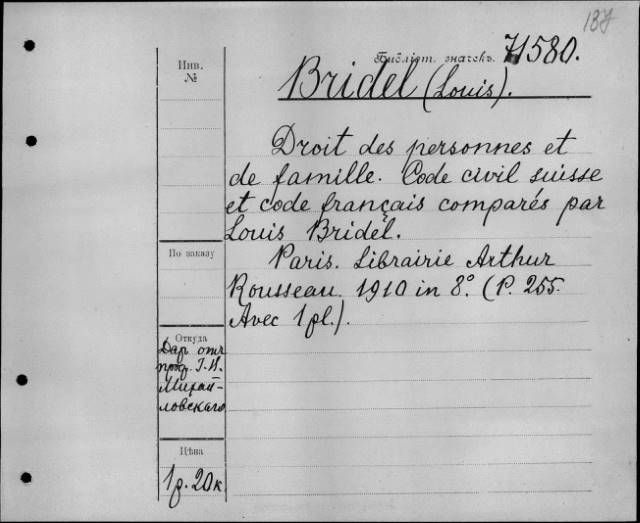 137
Библіот. значекъ. 71580.
Инв.
№
Bridel (Louis).
Droit des personnes et
de famille. Code civil suisse
et code français comparés par
Louis Bridel.
По заказу
Paris. Librairie Arthur
Rousseau. 1910 in 8º. (P. 255.
Avec 1 pl.).
Откуда
Дар отъ
проф. І. И.
Михай-
ловскаго
Цѣна
1 р. 20 к